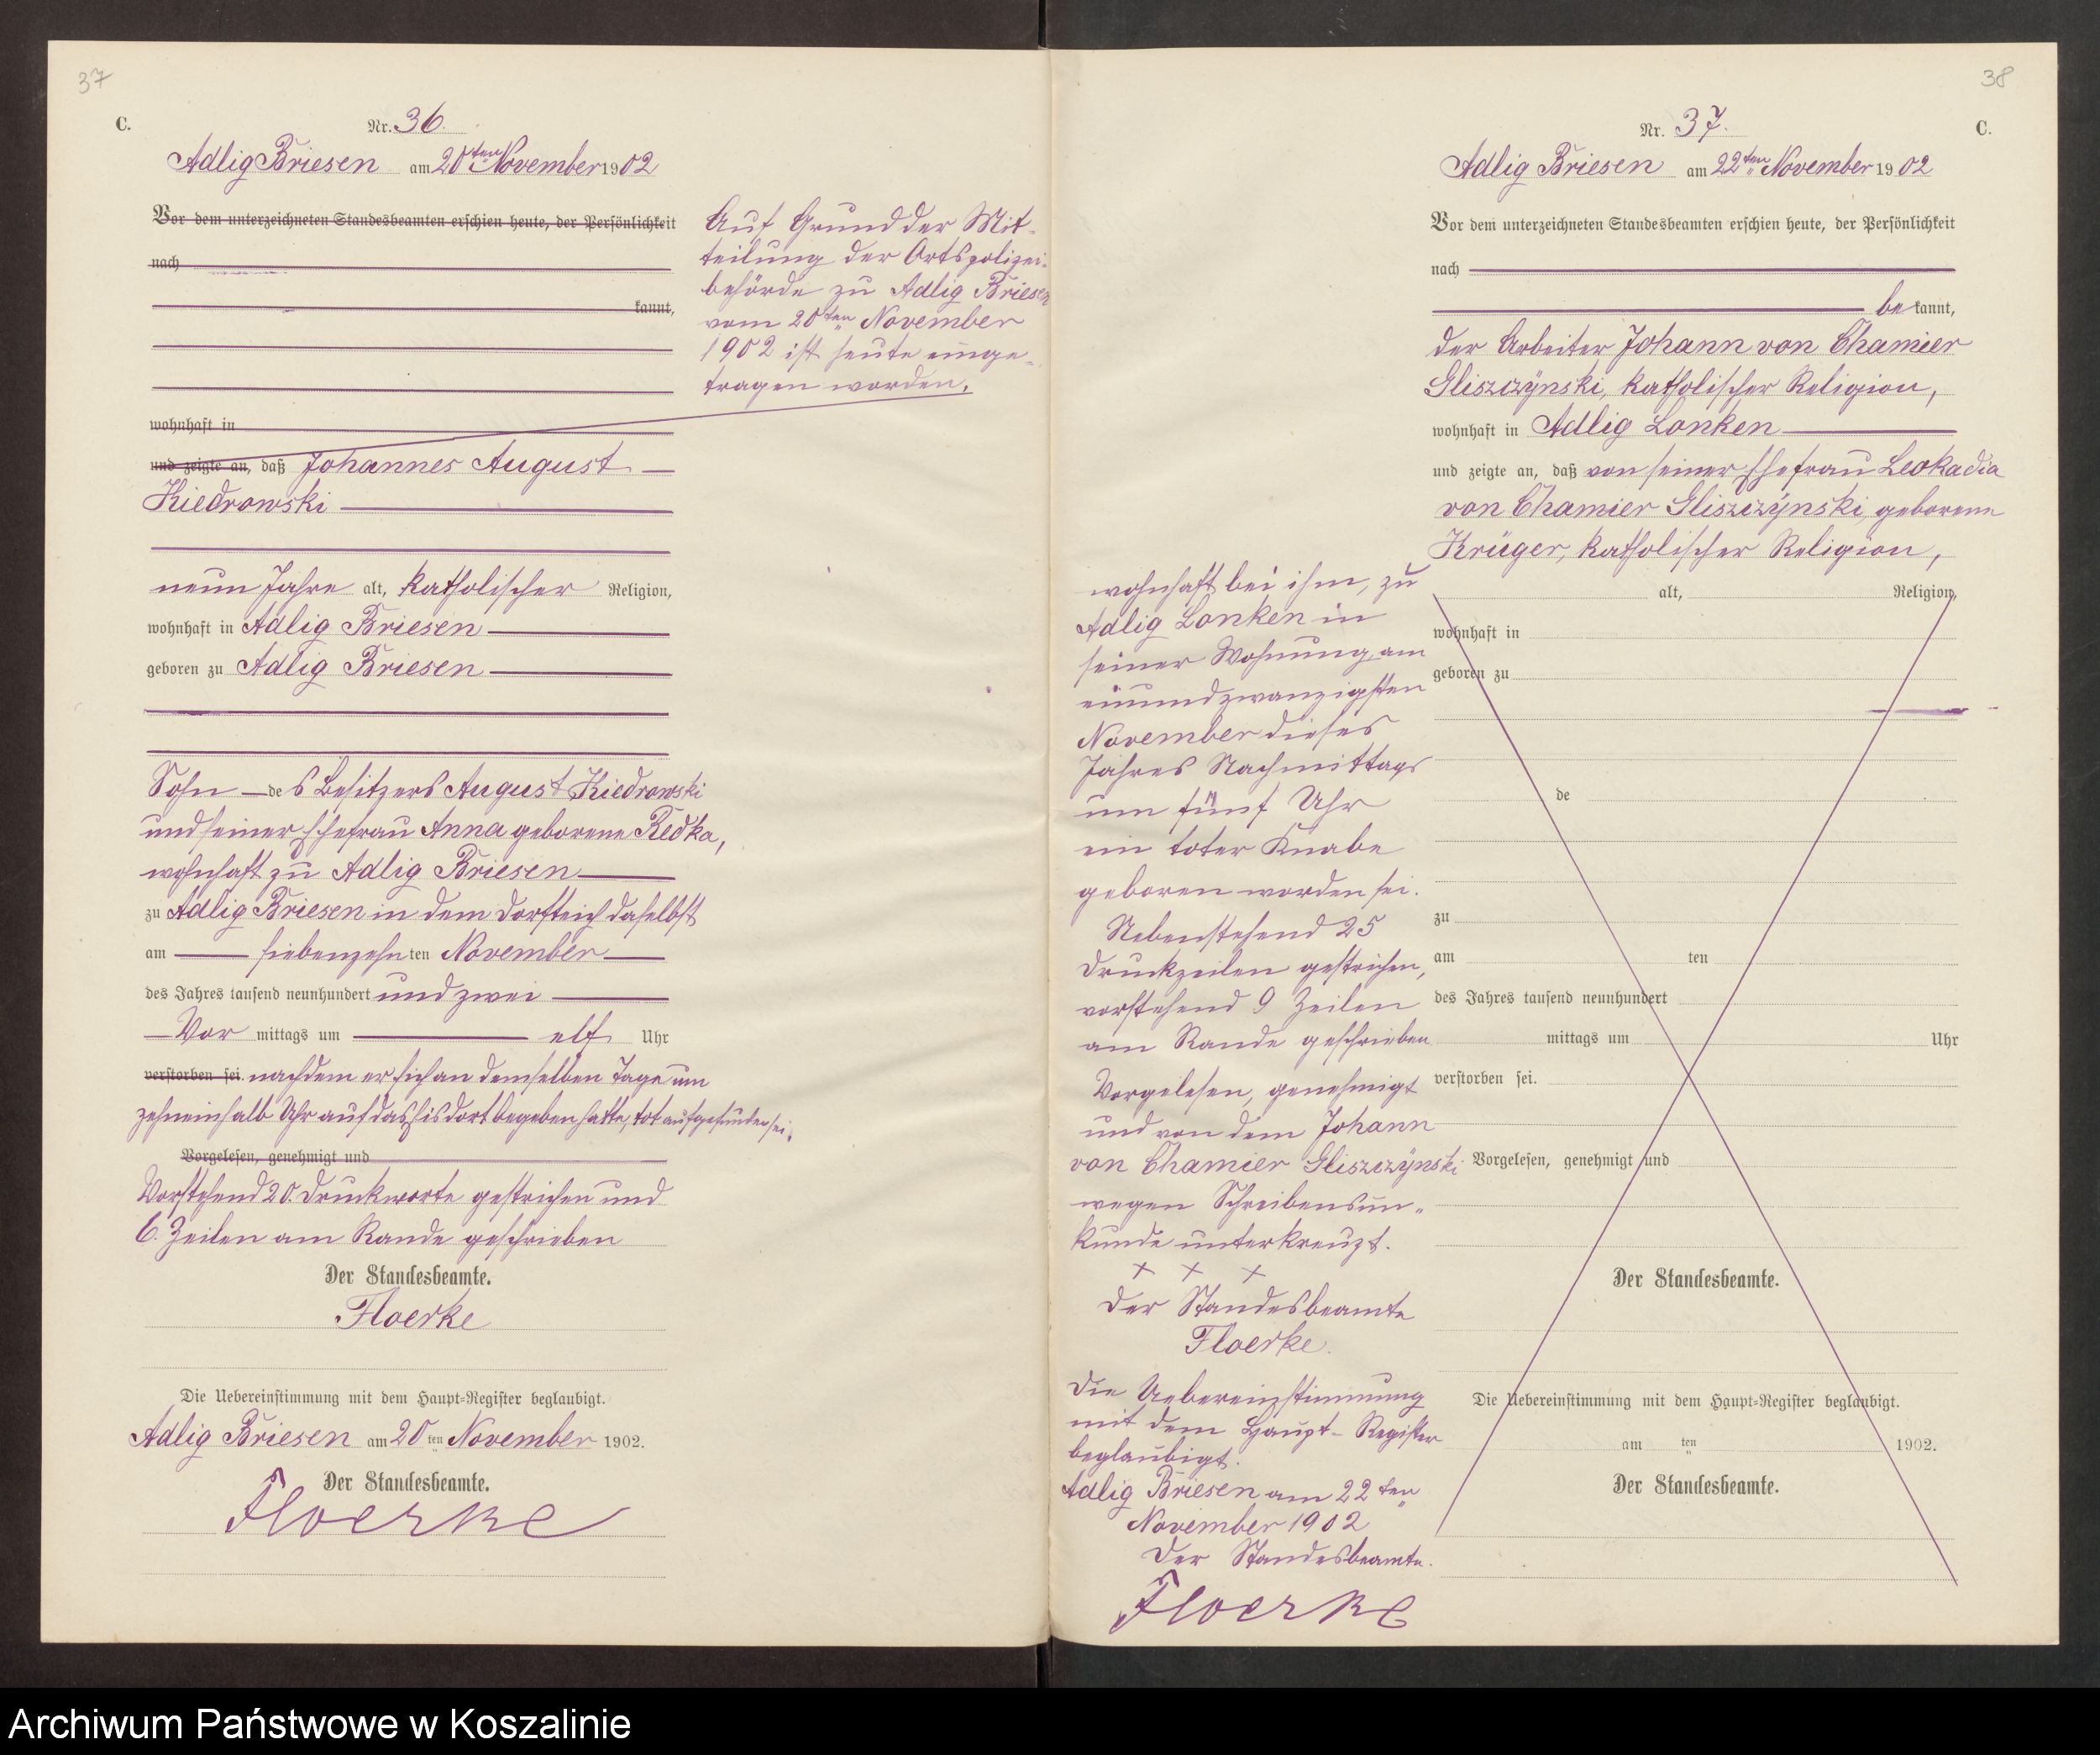 37
C.
Nr. 36.
Adlig Briesen am 20ten November 1902
Vor dem unterzeichneten Standesbeamten erschien heute, der Persönlichkeit
nach
kannt,
wohnhaft in
und zeigte an, daß Johannes August
Kiedrowski
neun Jahre alt, katholischer Religion,
wohnhaft in Adlig Briesen
geboren zu Adlig Briesen
Sohn des Besitzers August Kiedrowski
und seiner Ehefrau Anna geborene Redka,
wohnhaft zu Adlig Briesen
zu Adlig Briesen in dem Dorfteich daselbst
am siebenzehnten November
des Jahres tausend neunhundert und zwei
Vormittags um elf Uhr
verstorben sei. nachdem er sich an demselben Tage um
zehneinhalb Uhr auf das Eis dort begeben hatte, tot aufgefunden sei.
Vorgelesen, genehmigt und
Vorstehend 20. Druckworte gestrichen und
6. Zeilen am Rande geschrieben
Der Standesbeamte.
Floerke
Die Uebereinstimmung mit dem Haupt-Register beglaubigt.
Adlig Briesen am 20ten November 1902.
Der Standesbeamte.
Floerke
Auf Grund der Mit-
teilung der Ortspolizei-
behörde zu Adlig Briesen
vom 20ten November
1902 ist heute einge-
tragen worden.
38
C.
Nr. 37.
Adlig Briesen am 22ten November 1902
Vor dem unterzeichneten Standesbeamten erschien heute, der Persönlichkeit
nach
bekannt,
der Arbeiter Johann von Chamier
Gliszczÿnski, katholischer Religion,
wohnhaft in Adlig Lonken
und zeigte an, daß von seiner Ehefrau Leokadia
von Chamier Gliszczÿnski, geborene
Krüger, katholischer Religion,
wohnhaft bei ihm, zu
Adlig Lonken in
seiner Wohnung, am
einundzwanzigsten
November dieses
Jahres Nachmittags
um fünf Uhr
ein toter Knabe
geboren worden sei.
Nebenstehend 25
Druckzeilen gestrichen,
vorstehend 9 Zeilen
am Rande geschrieben
Vorgelesen, genehmigt
und von dem Johann
von Chamier Gliszczÿnski
wegen Schreibensun-
kunde unterkreuzt.
x x x
Der Standesbeamte
Floerke.
Die Uebereinstimmung
mit dem Haupt-Register
beglaubigt.
Adlig Briesen am 22ten
November 1902
Der Standesbeamte.
Floerke
alt, Religion,
wohnhaft in
geboren zu
de
zu
am ten
des Jahres tausend neunhundert
mittags um Uhr
verstorben sei.
Vorgelesen, genehmigt und
Der Standesbeamte.
Die Uebereinstimmung mit dem Haupt-Register beglaubigt.
am ten 1902.
Der Standesbeamte.
Archiwum Państwowe w Koszalinie